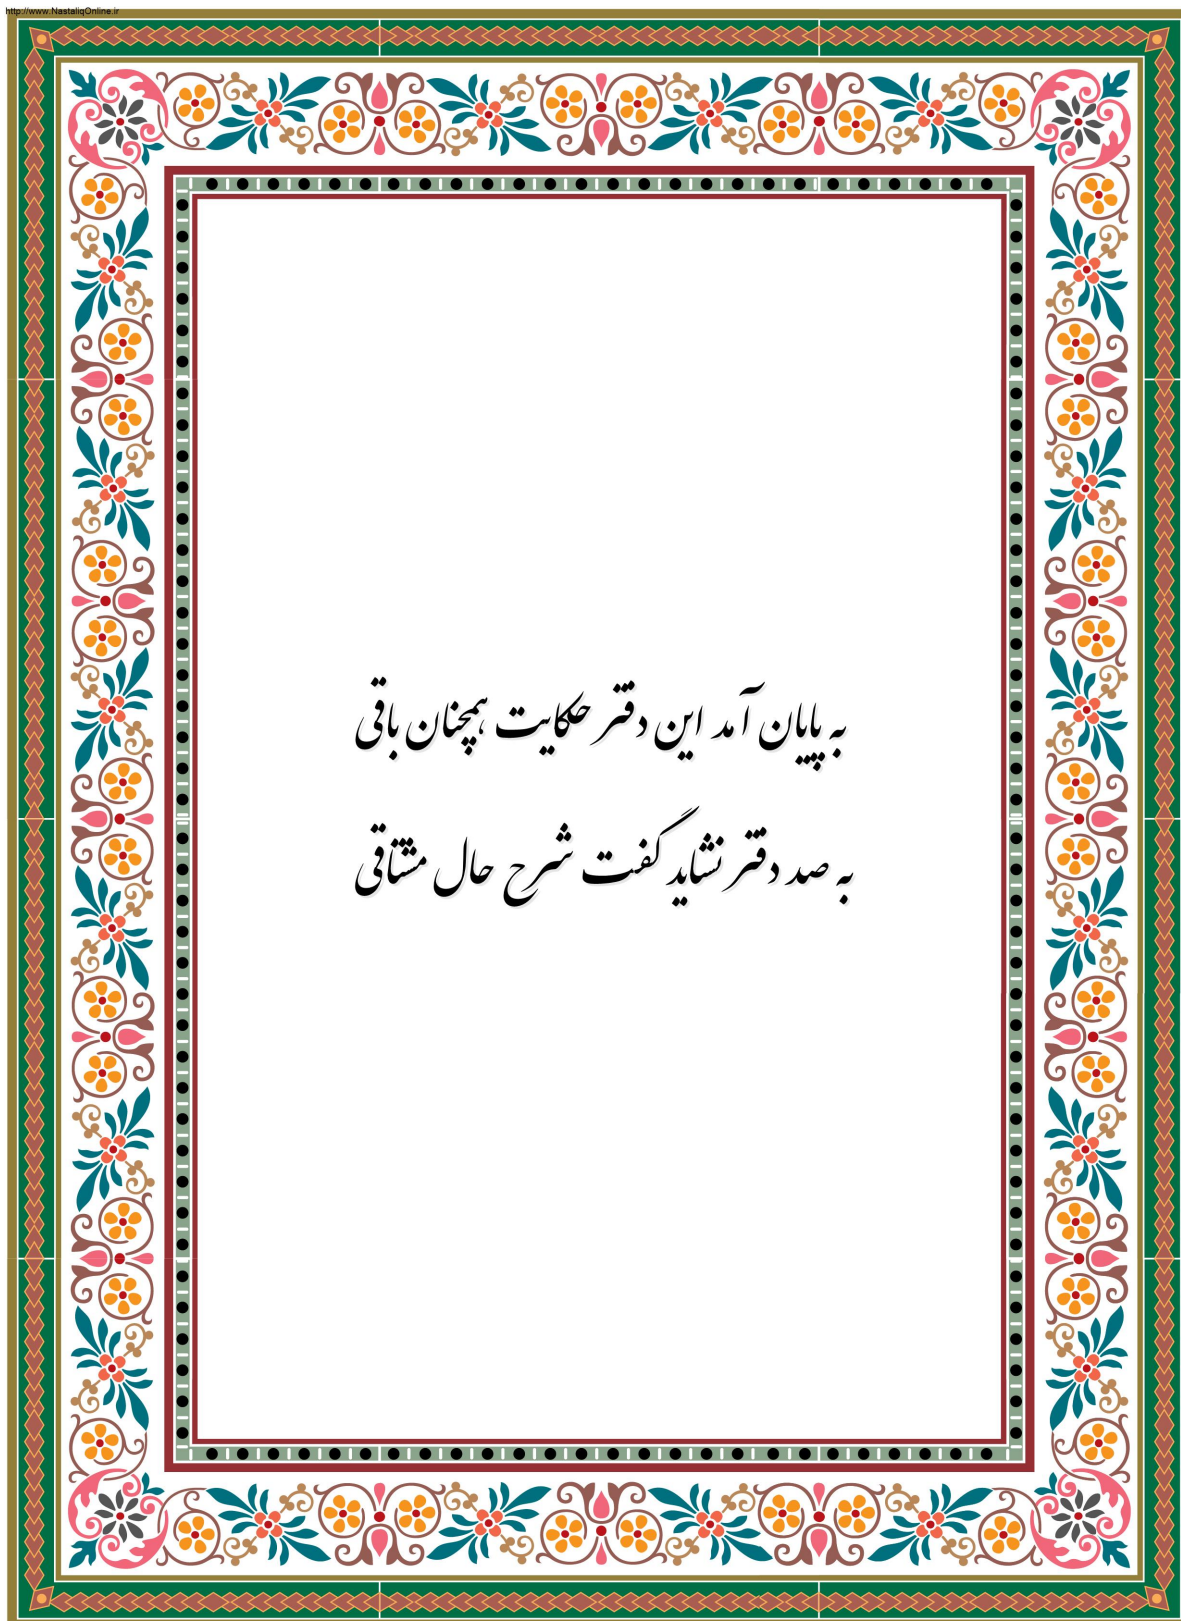 http://www.NastaliqOnline.ir
به پایان آمد این دفتر حکایت همچنان باقی
به صد دفتر نشاید گفت شرح حال مشتاقی